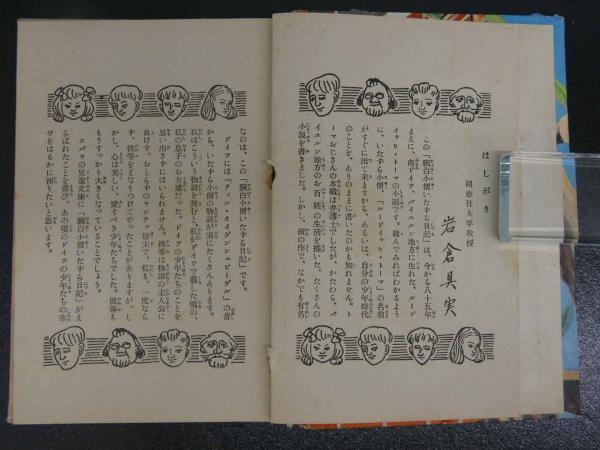 はしがき
同志社大学教授
岩倉具実
この「腕白小僧いたずら日記」は、今から八十五年
まえに、南ドイツ、バイエルン地方に生れた、ルード
イッヒ・トーマの小説です。読んでみればわかるよう
に、いたずら小僧、「ルードイッヒ・トーマ」の名前
がすぐに出て来ますから、あるいは、自分の少年時代
のことを、ありのままに書いたのかも知れません。ト
ーマおじさんの本職は弁護士でしたが、かたわら、バ
イエルン地方のお百姓の生活を描いた、たくさんの
小説を書きました。しかし、彼の作で、なかでも有名
なのは、この「腕白小僧いたずら日記」です。
ドイツには「ティル・オイゲンシュピーゲル」の昔
から、いたずら小僧の物語が実にたくさんあります。
私はこういう物語を読むと、私がドイツで暮した頃の、
私の息子のお友達だった、ドイツの少年たちのことを
思い出さずにはいられません。彼等も物語の主人公に
負けず、おとらずのワンチャ坊主で、私も、一度なら
ず、彼等をどなりつけてやったことがありますが、し
かし、心は美しい、愛すべき少年たちでした。彼等も
もうすっかり大きくなっていることでしょう。
カバヤの児童文庫に「腕白小僧いたずら日記」がえ
らばれたことを喜び、あの頃のドイツの少年たちの幸
せをはるかに祈りたいと思います。